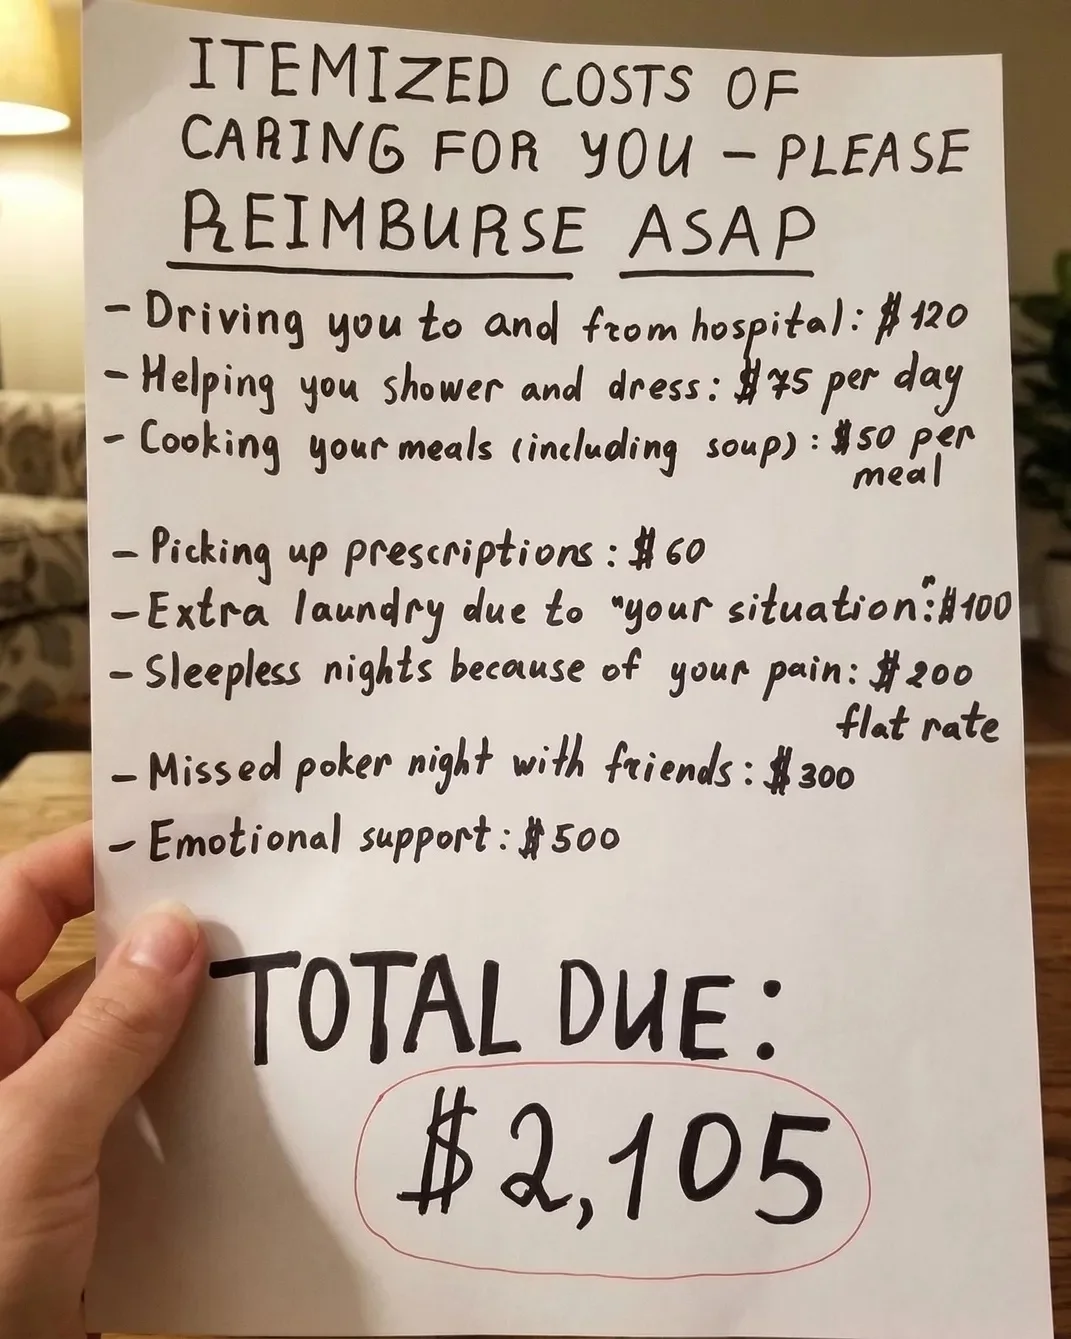 ITEMIZED COSTS OF
CARING FOR YOU – PLEASE
REIMBURSE ASAP
- Driving you to and from hospital: $120
- Helping you shower and dress: $75 per day
- Cooking your meals (including soup): $50 per
meal
- Picking up prescriptions: $60
- Extra laundry due to "your situation": $100
- Sleepless nights because of your pain: $200
flat rate
- Missed poker night with friends: $300
- Emotional support: $500
TOTAL DUE:
$2,105